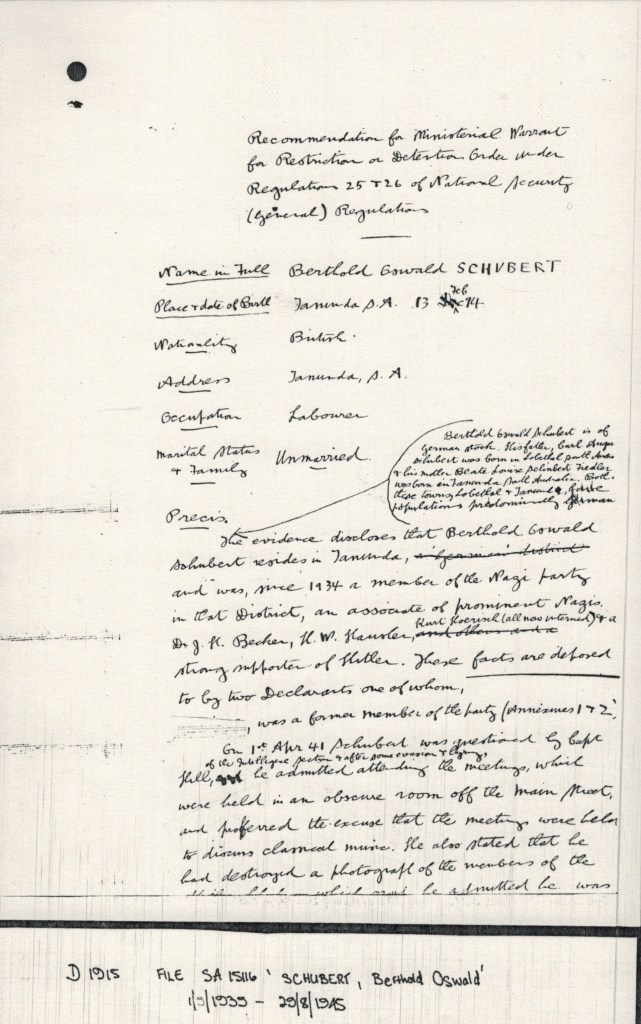 Recommendation for Ministerial Warrant
for Restriction or Detention Order under
Regulations 25 & 26 of National Security
(General) Regulations
Name in Full Berthold Oswald SCHUBERT
Place & date of Birth Tanunda S.A. 13 Feb 14.
Nationality British.
Address Tanunda, S.A.
Occupation Labourer
Marital Status
& Family Unmarried
Berthold Oswald Schubert is of
German stock. His father, Carl
Schubert was born in Lobethal South Aus
& his mother Beate Louise Schubert Fiedler
was born in Tanunda South Australia. Both
these towns, Lobethal & Tanunda, have
populations predominantly German
Precis.
The evidence discloses that Berthold Oswald
Schubert resides in Tanunda, a German district
and was, since 1934 a member of the Nazi party
in that District, an associate of prominent Nazis.
Dr J. H. Becker, H. W. Hausler, and others and a
Kurt Hoerisch (all now interned) & a
strong supporter of Hitler. These facts are deposed
to by two Declarants one of whom,
, was a former member of the party (Annexures 1 & 2)
On 1st Apr 41 Schubert was questioned by Capt
of the Intelligence Section & after some evasion & lying,
Hill, he admitted attending the meetings, which
were held in an obscure room off the Main Street,
and proferred the excuse that the meetings were held
to discuss classical music. He also stated that he
had destroyed a photograph of the members of the
which he admitted he was
D 1915 FILE SA 15116 'SCHUBERT, Berthold Oswald'
1/9/1939 - 29/8/1945